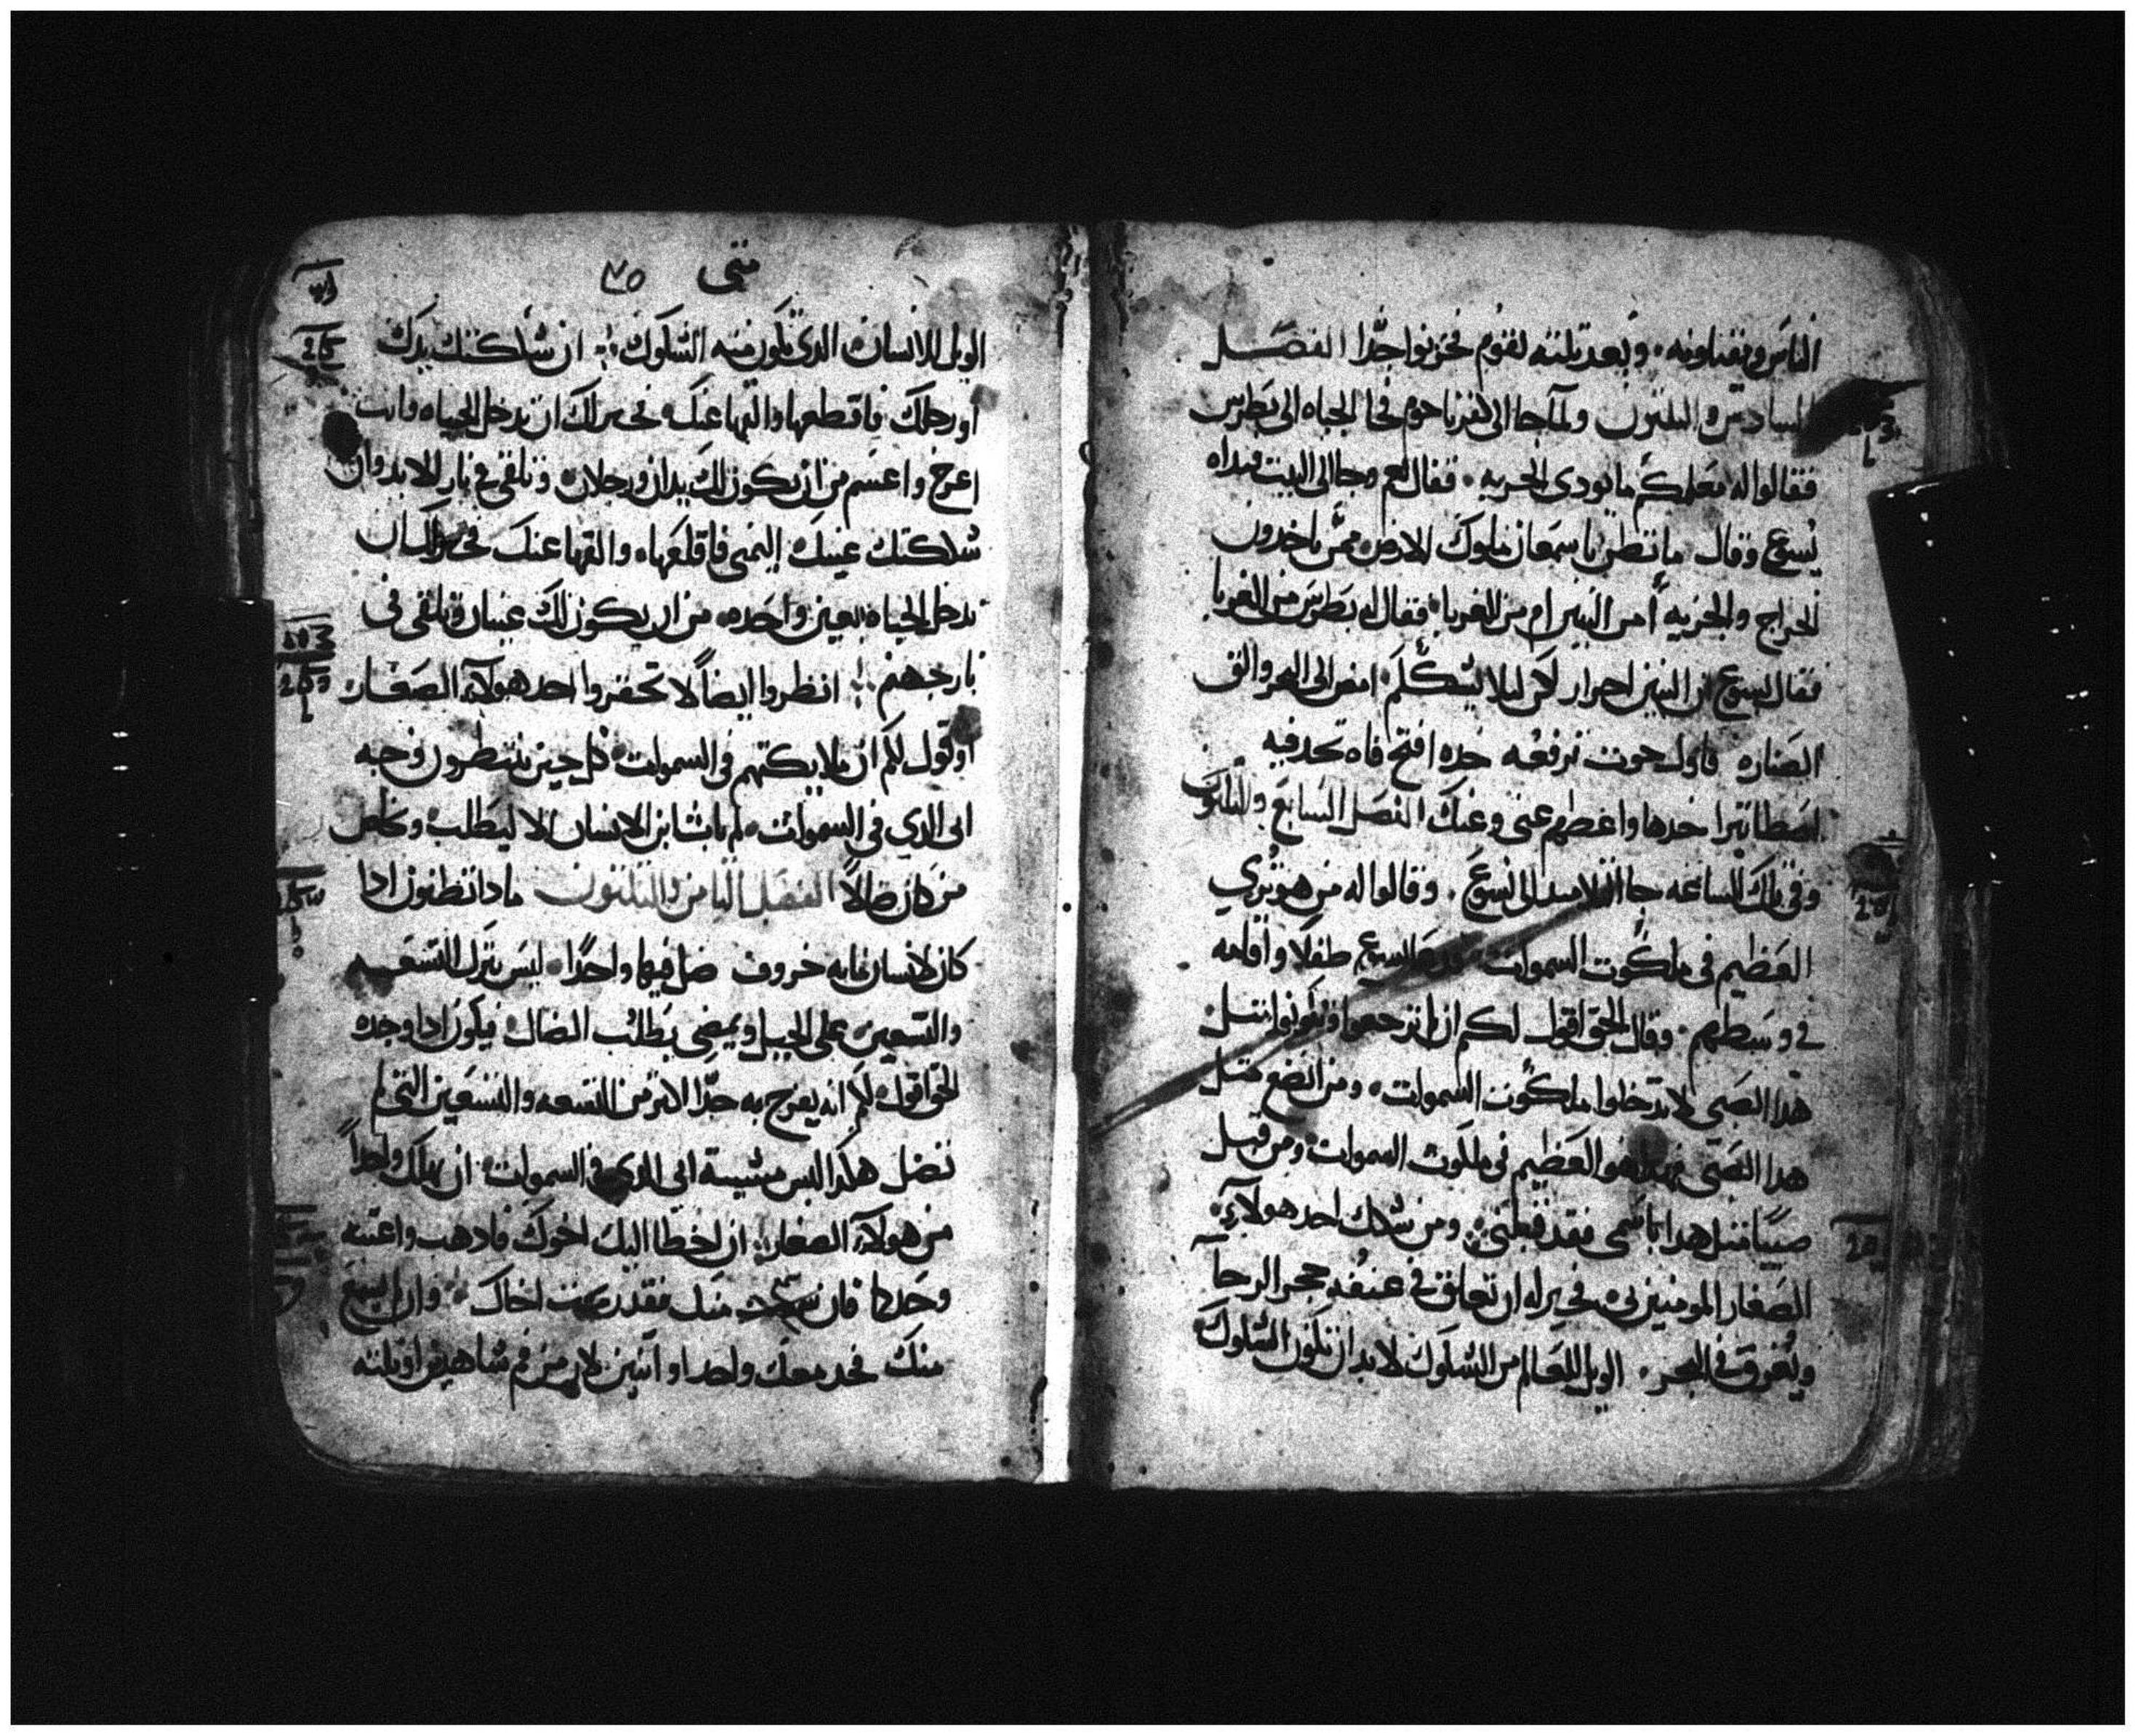 الناس ويقتلونه ۰ وبعد تلته يقوم فحزنوا جدًّا الفصل
السادس والتلتون ولما جا الى كفرناحوم فجا الجباه الى بطرس
فقالوا له معلمكم ما يودى الجزيه ۰ فقال نعم وجا الى البيت فبداه
يسوع وقال ما تظن يا سمعان ملوك الارض ممن ياخدون
الخراج والجزيه أمن البنين ام من الغربا فقال له بطرس من الغربا
فقال يسوع ان البنين احرار لكن ليلا نشككم امض الى البحر والق
الصناره فاول حوت ترفعه خده افتح فاه تجد فيه
اسطاتيرا خدها واعطهم عنى وعنك الفصل السابع والتلتون
وفى تلك الساعه جا التلاميد الى يسوع ۰ وقالوا له من هو تري
العظيم فى ملكوت السموات يسوع طفلا واقامه
فى وسطهم ۰ وقال الحق اقول لكم ان لم ترجعوا وتكونوا متل
هدا الصبي لا تدخلوا ملكوت السموات ۰ ومن اتضع متل
هدا الصبي فهدا هو العظيم فى ملكوت السموات ومن قبل
صبيًا متل هدا باسمى فقد قبلنى ومن شكك احد هولآء
الصغار المومنين بى فخير له ان تعلق فى عنقه حجر الرحا
ويغرق فى البحر ۰ الويل للعالم من الشكوك لا بد ان تكون الشكوك
متى ٣٥
الويل للانسان الدى تكون منه الشكوك ان شككتك يدك
او رجلك فاقطعها والقها عنك فخير لك ان تدخل الحياه وانت
اعرج واعسم من ان يكون لك يدان ورجلان وتلقى فى نار الابد وان
شككتك عينك اليمنى فاقلعها والقها عنك فخير لك ان
تدخل الحياه بعين واحده من ان يكون لك عينان وتلقى فى
نار جهنم انظروا ايضًا لا تحقروا احد هولآء الصغار
اقول لكم ان ملايكتهم فى السموات كل حين ينتظرون وجه
ابى الدي فى السموات لم يات ابن الانسان الا ليطلب ويخلص
من كان ضالاً الفصل التامن والتلتون مادا تظنون ادا
كان لانسان مايه خروف ضل فيها واحدًا ليس يترك التسعه
والتسعين على الجبل ويمضى يطلب الضال فيكون ادا وجده
الحق اقول لكم انه يفرح به جدًّا اكتر من التسعه والتسعين التى لم
تضل هكدا ليس مشيية ابى الدى فى السموات ان يهلك واحدًا
من هولآء الصغار ان اخطا اليك اخوك فادهب واعتبه
وحدكما فان سمع منك فقد ربحت اخاك وان لم يسمع
منك فخد معك واحد او اتنين لان من فم شاهدين او تلته